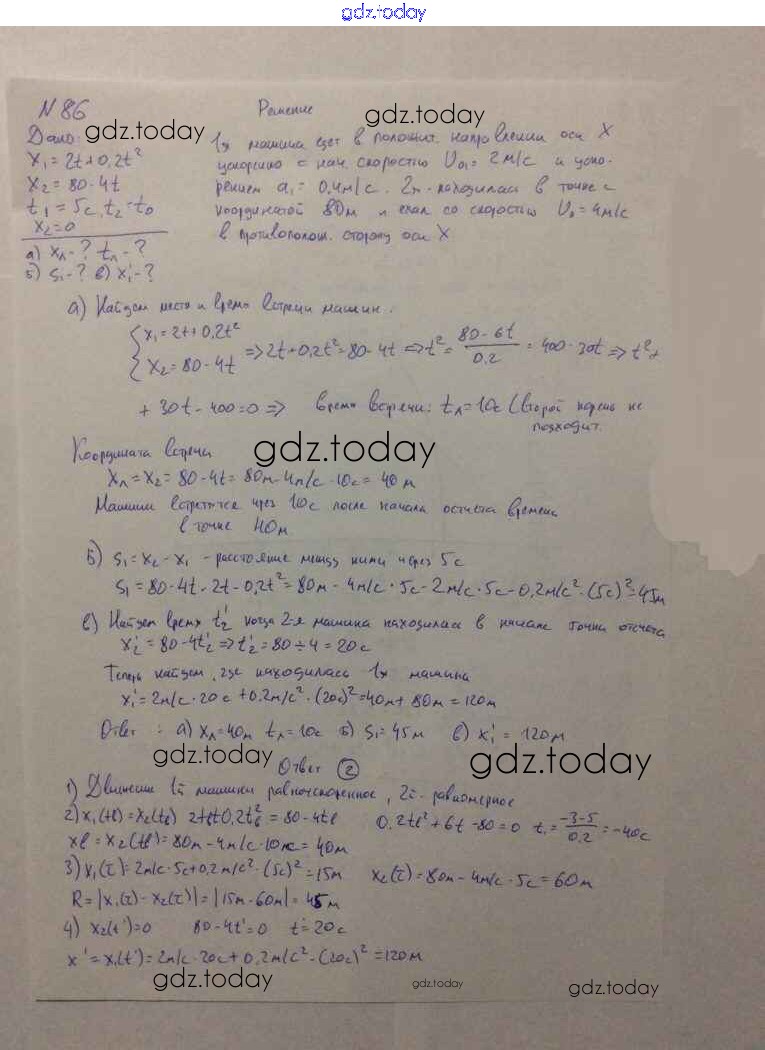 gdz.today
N 86 Решение gdz.today
Дано: gdz.today 1я машина едет в положит. направлении оси X
x₁ = 2t + 0,2t² ускорено с нач. скоростью V₀₁ = 2 м/с и уско-
x₂ = 80 - 4t рением a₁ = 0,4 м/с. 2я - находилась в точке с
t₁ = 5с, t₂ = t₀ координатой 80м и ехал со скоростью V₀ = 4м/с
x₂ = 0 в противополож. сторону оси X
а) xл - ? tл - ?
б) S₁ - ? в) x₁' - ?
а) Найдем место и время встречи машин.
{ x₁ = 2t + 0,2t²
x₂ = 80 - 4t => 2t + 0,2t² = 80 - 4t => t² = (80 - 6t)/0.2 = 400 - 30t => t² +
+ 30t - 400 = 0 => время встречи: tл = 10с (второй корень не
подходит.
Координата встречи gdz.today
xл = x₂ = 80 - 4t = 80м - 4м/с · 10с = 40 м
Машины встретятся через 10с после начала отсчета времени
в точке 40м.
б) S₁ = x₂ - x₁ - расстояние между ними через 5с
S₁ = 80 - 4t - 2t - 0,2t² = 80м - 4м/с · 5с - 2м/с · 5с - 0,2м/с² · (5с)² = 45м
в) Найдем время t₂' когда 2-я машина находилась в начале точки отсчета
x₂' = 80 - 4t₂' => t₂' = 80 ÷ 4 = 20с
Теперь найдем, где находилась 1я машина
x₁' = 2м/с · 20с + 0.2м/с² · (20с)² = 40м + 80м = 120м
Ответ: а) xл = 40м tл = 10с б) S₁ = 45м в) x₁' = 120м
gdz.today gdz.today
Ответ ②
1) Движение 1й машины равноускоренное, 2й - равномерное
2) x₁(tв) = x₂(tв) 2tв + 0,2tв² = 80 - 4tв 0.2tв² + 6t - 80 = 0 t₁ = (-3-5)/0.2 = -40с
xв = x₂(tв) = 80м - 4м/с · 10с = 40м
3) x₁(τ) = 2м/с · 5с + 0,2м/с² · (5с)² = 15м x₂(τ) = 80м - 4м/с · 5с = 60м
R = |x₁(τ) - x₂(τ)| = |15м - 60м| = 45м
4) x₂(t') = 0 80 - 4t' = 0 t' = 20с
x' = x₁(t') = 2м/с · 20с + 0,2м/с² · (20с)² = 120м
gdz.today gdz.today gdz.today